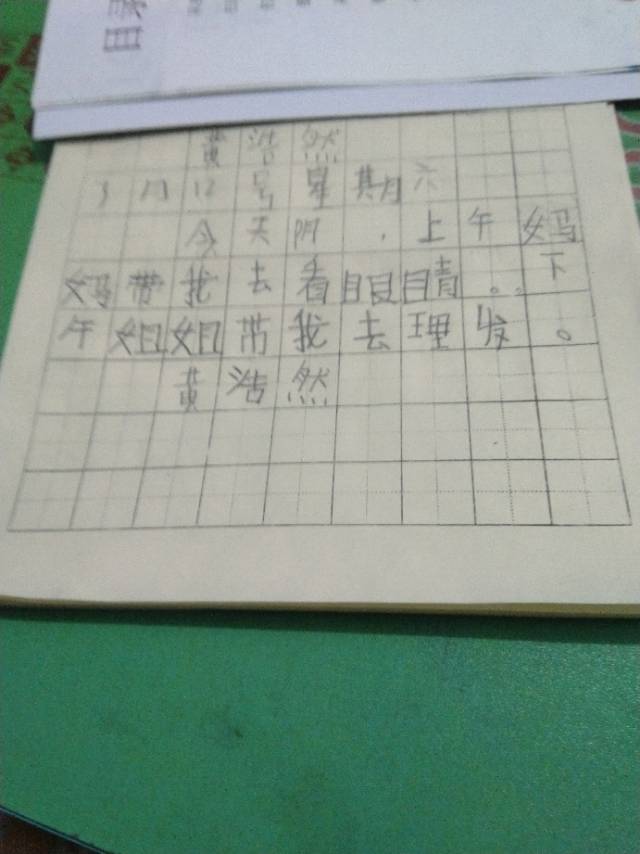 目录
黄浩然
3月12号星期六
今天阴,上午妈
妈带我去看眼睛。下
午妲妲带我去理发。
黄浩然